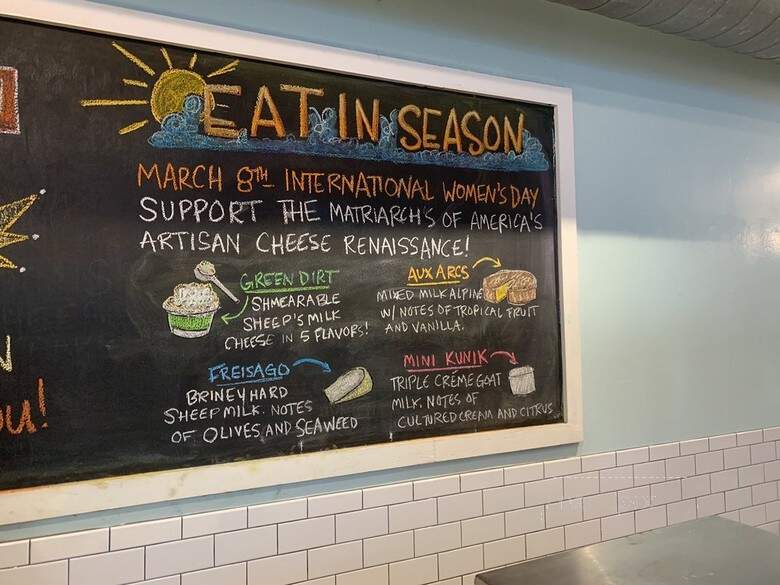 EAT IN SEASON
MARCH 8TH INTERNATIONAL WOMEN'S DAY
SUPPORT THE MATRIARCH'S OF AMERICA'S
ARTISAN CHEESE RENAISSANCE!
GREEN DIRT
SHMEARABLE
SHEEP'S MILK
CHEESE IN 5 FLAVORS!
AUX ARCS
MIXED MILK ALPINE
W/ NOTES OF TROPICAL FRUIT
AND VANILLA.
FREISAGO
BRINEY HARD
SHEEP MILK. NOTES
OF OLIVES AND SEAWEED
MINI KUNIK
TRIPLE CRÉME GOAT
MILK. NOTES OF
CULTURED CREAM AND CITRUS
u!